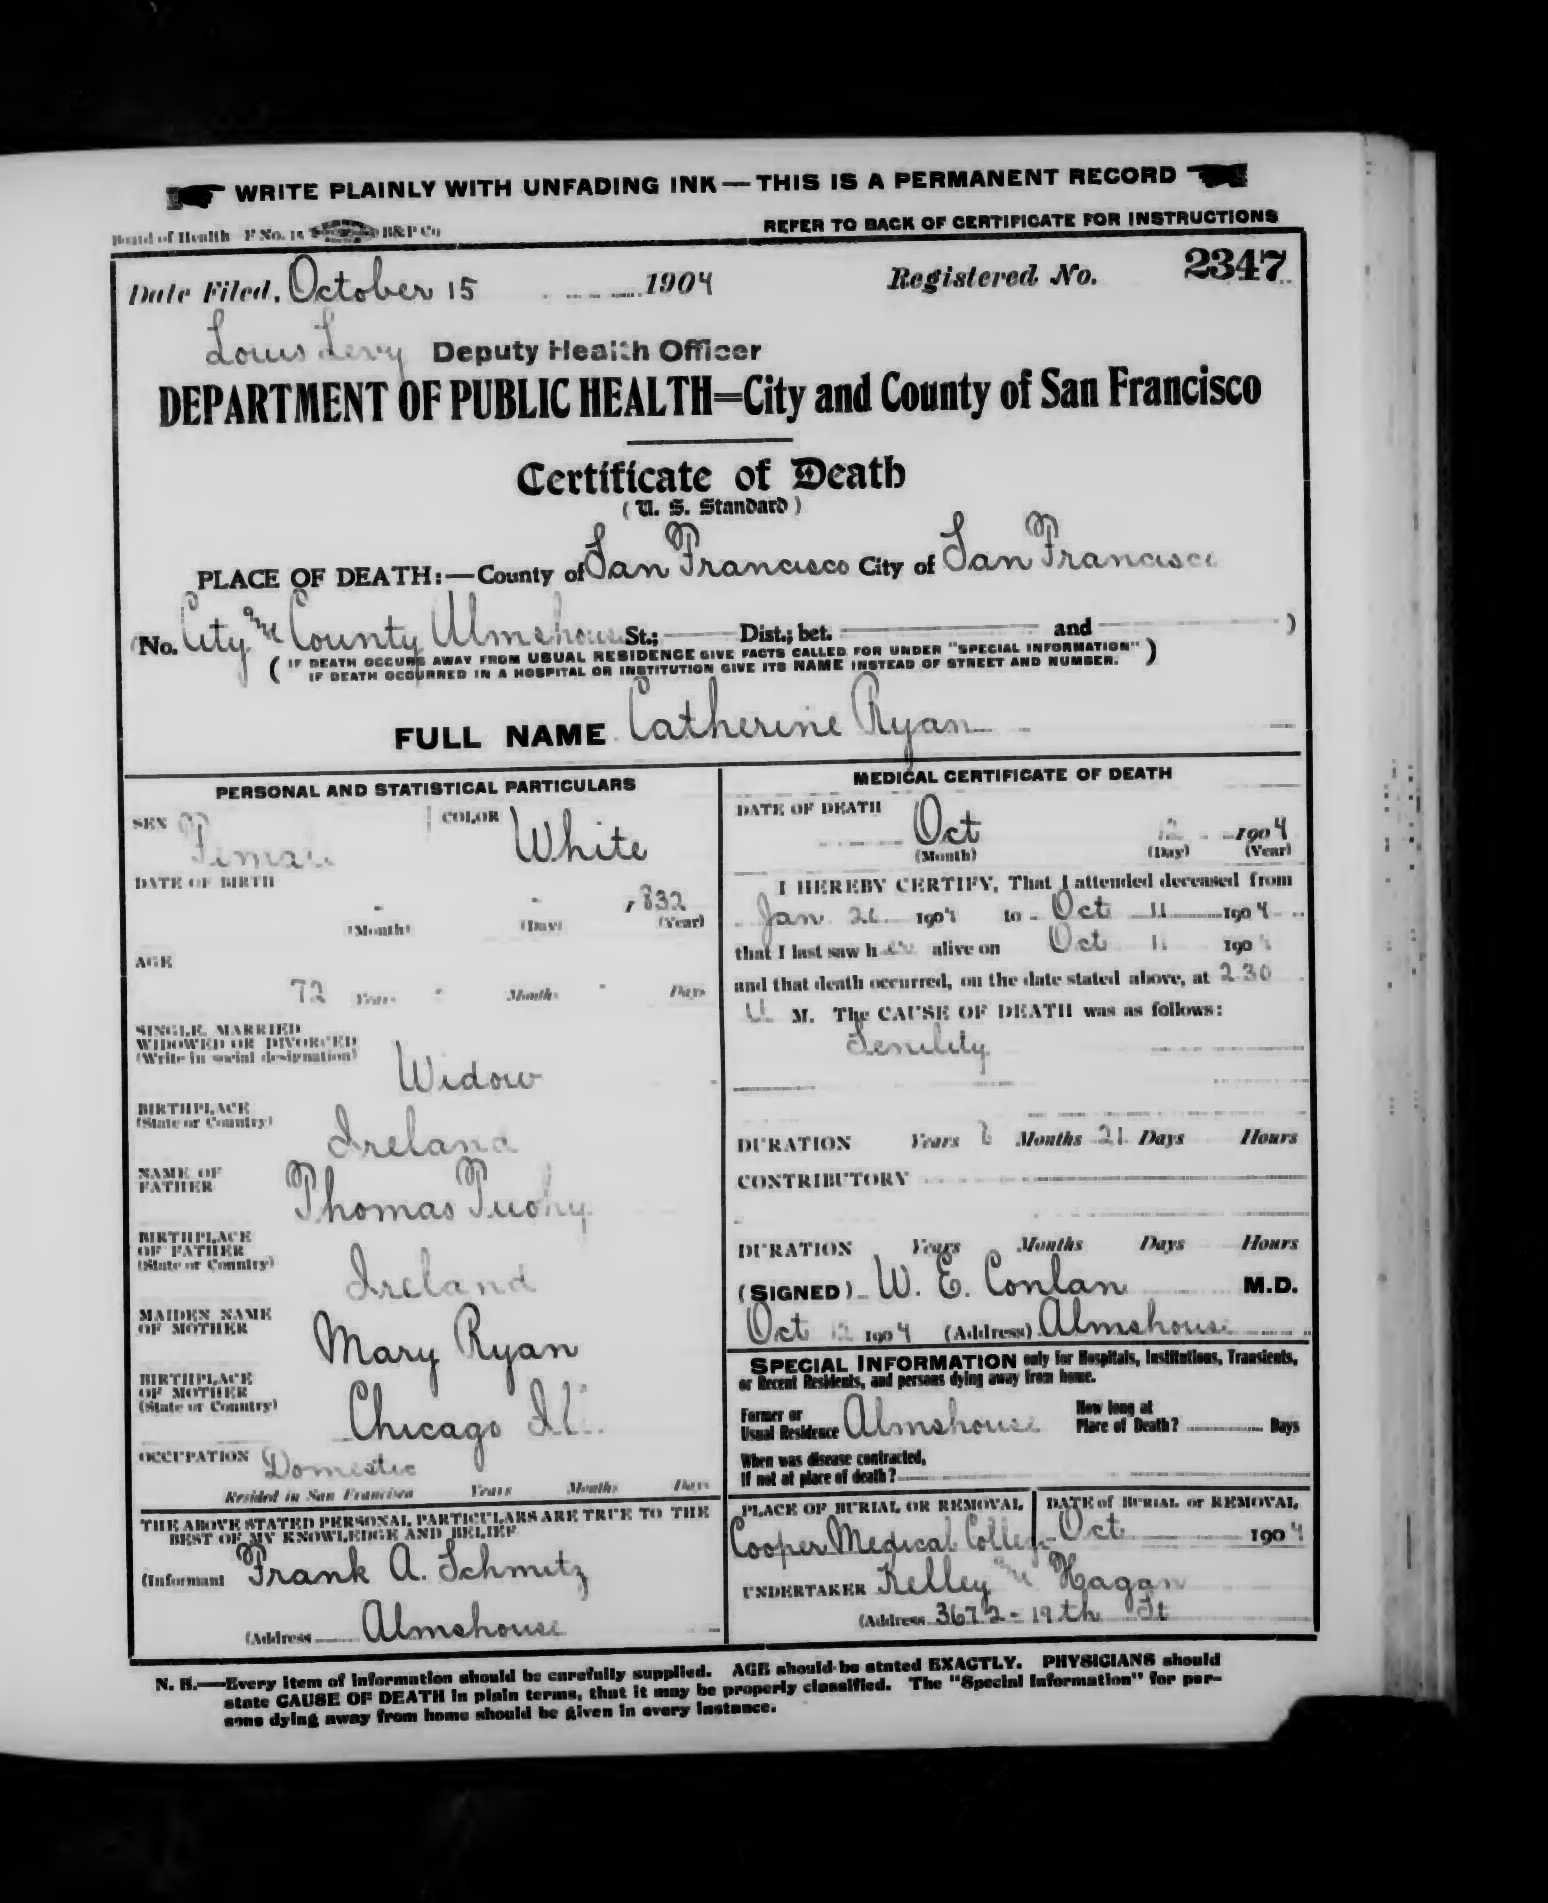 WRITE PLAINLY WITH UNFADING INK — THIS IS A PERMANENT RECORD
Board of Health F No. 15 B&P Co
REFER TO BACK OF CERTIFICATE FOR INSTRUCTIONS
Date Filed, October 15 1904 Registered No. 2347
Louis Levy Deputy Health Officer
DEPARTMENT OF PUBLIC HEALTH=City and County of San Francisco
Certificate of Death
(U. S. Standard)
PLACE OF DEATH:—County of San Francisco City of San Francisco
(No. City and County Almshouse St.; Dist.; bet. and )
( IF DEATH OCCURS AWAY FROM USUAL RESIDENCE GIVE FACTS CALLED FOR UNDER "SPECIAL INFORMATION" )
IF DEATH OCCURRED IN A HOSPITAL OR INSTITUTION GIVE ITS NAME INSTEAD OF STREET AND NUMBER.
FULL NAME Catherine Ryan
PERSONAL AND STATISTICAL PARTICULARS
SEX Female COLOR White
DATE OF BIRTH
- - 1832
(Month) (Day) (Year)
AGE
72 Years - Months - Days
SINGLE, MARRIED
WIDOWED OR DIVORCED
(Write in social designation)
Widow
BIRTHPLACE
(State or Country)
Ireland
NAME OF
FATHER
Thomas Tuohy
BIRTHPLACE
OF FATHER
(State or Country)
Ireland
MAIDEN NAME
OF MOTHER
Mary Ryan
BIRTHPLACE
OF MOTHER
(State or Country)
Chicago Ill.
OCCUPATION Domestic
Resided in San Francisco Years Months Days
THE ABOVE STATED PERSONAL PARTICULARS ARE TRUE TO THE
BEST OF MY KNOWLEDGE AND BELIEF
(Informant Frank A. Schmitz
(Address Almshouse
MEDICAL CERTIFICATE OF DEATH
DATE OF DEATH
Oct 12 1904
(Month) (Day) (Year)
I HEREBY CERTIFY, That I attended deceased from
Jan 1904 to Oct 11 1904
that I last saw her alive on Oct 11 190
and that death occurred, on the date stated above, at 2.30
M. The CAUSE OF DEATH was as follows:
Senility
DURATION Years 8 Months 21 Days Hours
CONTRIBUTORY
DURATION Years Months Days Hours
(SIGNED) W. E. Conlan M.D.
Oct 12 1904 (Address) Almshouse
SPECIAL INFORMATION only for Hospitals, Institutions, Transients,
or Recent Residents, and persons dying away from home.
Former or
Usual Residence Almshouse
How long at
Place of Death? Days
When was disease contracted,
If not at place of death?
PLACE OF BURIAL OR REMOVAL
Cooper Medical College
DATE of BURIAL or REMOVAL
Oct 1904
UNDERTAKER Kelley and Hagan
(Address 3672 - 19th St
N. B.—Every item of information should be carefully supplied. AGE should be stated EXACTLY. PHYSICIANS should
state CAUSE OF DEATH in plain terms, that it may be properly classified. The "Special Information" for per-
sons dying away from home should be given in every instance.